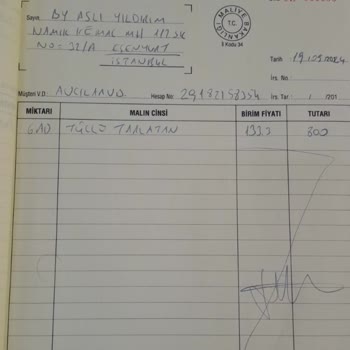 Sayın BY ASLI YILDIRIM
NAMIK KEMAL MH 117 SK
NO: 32/A ESENYURT
İSTANBUL
MALİYE BAKANLIĞI
T.C.
Tarih
İrs. No
Müşteri V.D.: AVCILAR V.D. Hesap No:
İrs. Tar : / /201
MİKTARI MALIN CİNSİ BİRİM FİYATI TUTARI
TÜLLÜ TARLATAN 800